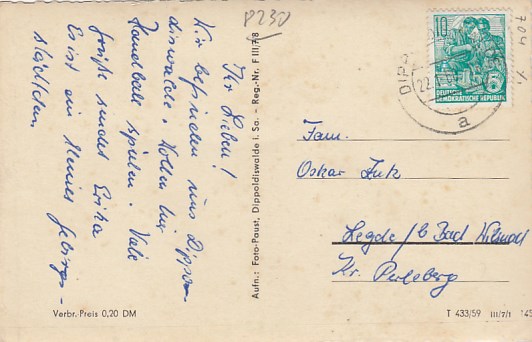 P230
Ihr Lieben!
Wir befinden uns Dippol-
diswalde. Wollen hier
Handball spielen. Viele
Grüße sendet Erika
Es ist ein kleines Gebirgs-
städtchen.
Verbr. Preis 0,20 DM
Aufn.: Foto-Paust, Dippoldiswalde i. Sa. - Reg.-Nr. F III/78
10
DEUTSCHE
DEMOKRATISCHE REPUBLIK
DIPP
22.
a
704
Fam.
Oskar
Legde/b Bad Wilsnack
Kr. Perleberg
T 433/59 III/7/1 145